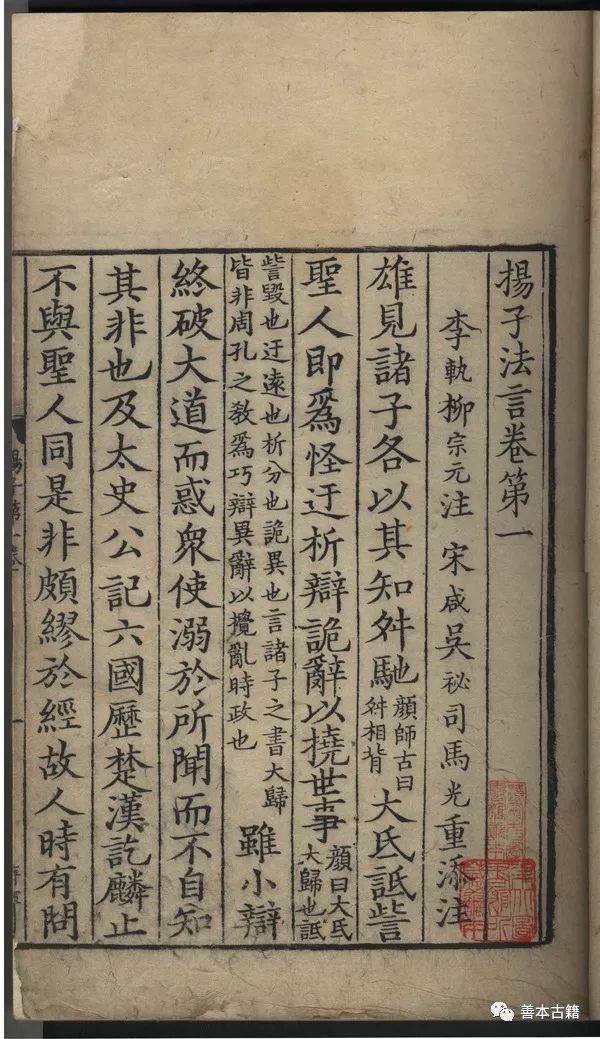 揚子法言卷第一
李軌柳宗元注 宋咸吳祕司馬光重添注
雄見諸子各以其知舛馳
顔師古曰
舛相背
大氐詆訾
聖人即爲怪迂析辯詭辭以撓世事
顔曰大氐
大歸也詆
訾毀也迂遠也析分也詭異也言諸子之書大歸
皆非周孔之敎爲巧辯異辭以攪亂時政也
雖小辯
終破大道而惑衆使溺於所聞而不自知
其非也及太史公記六國歷楚漢訖麟止
不與聖人同是非頗繆於經故人時有問
善本古籍